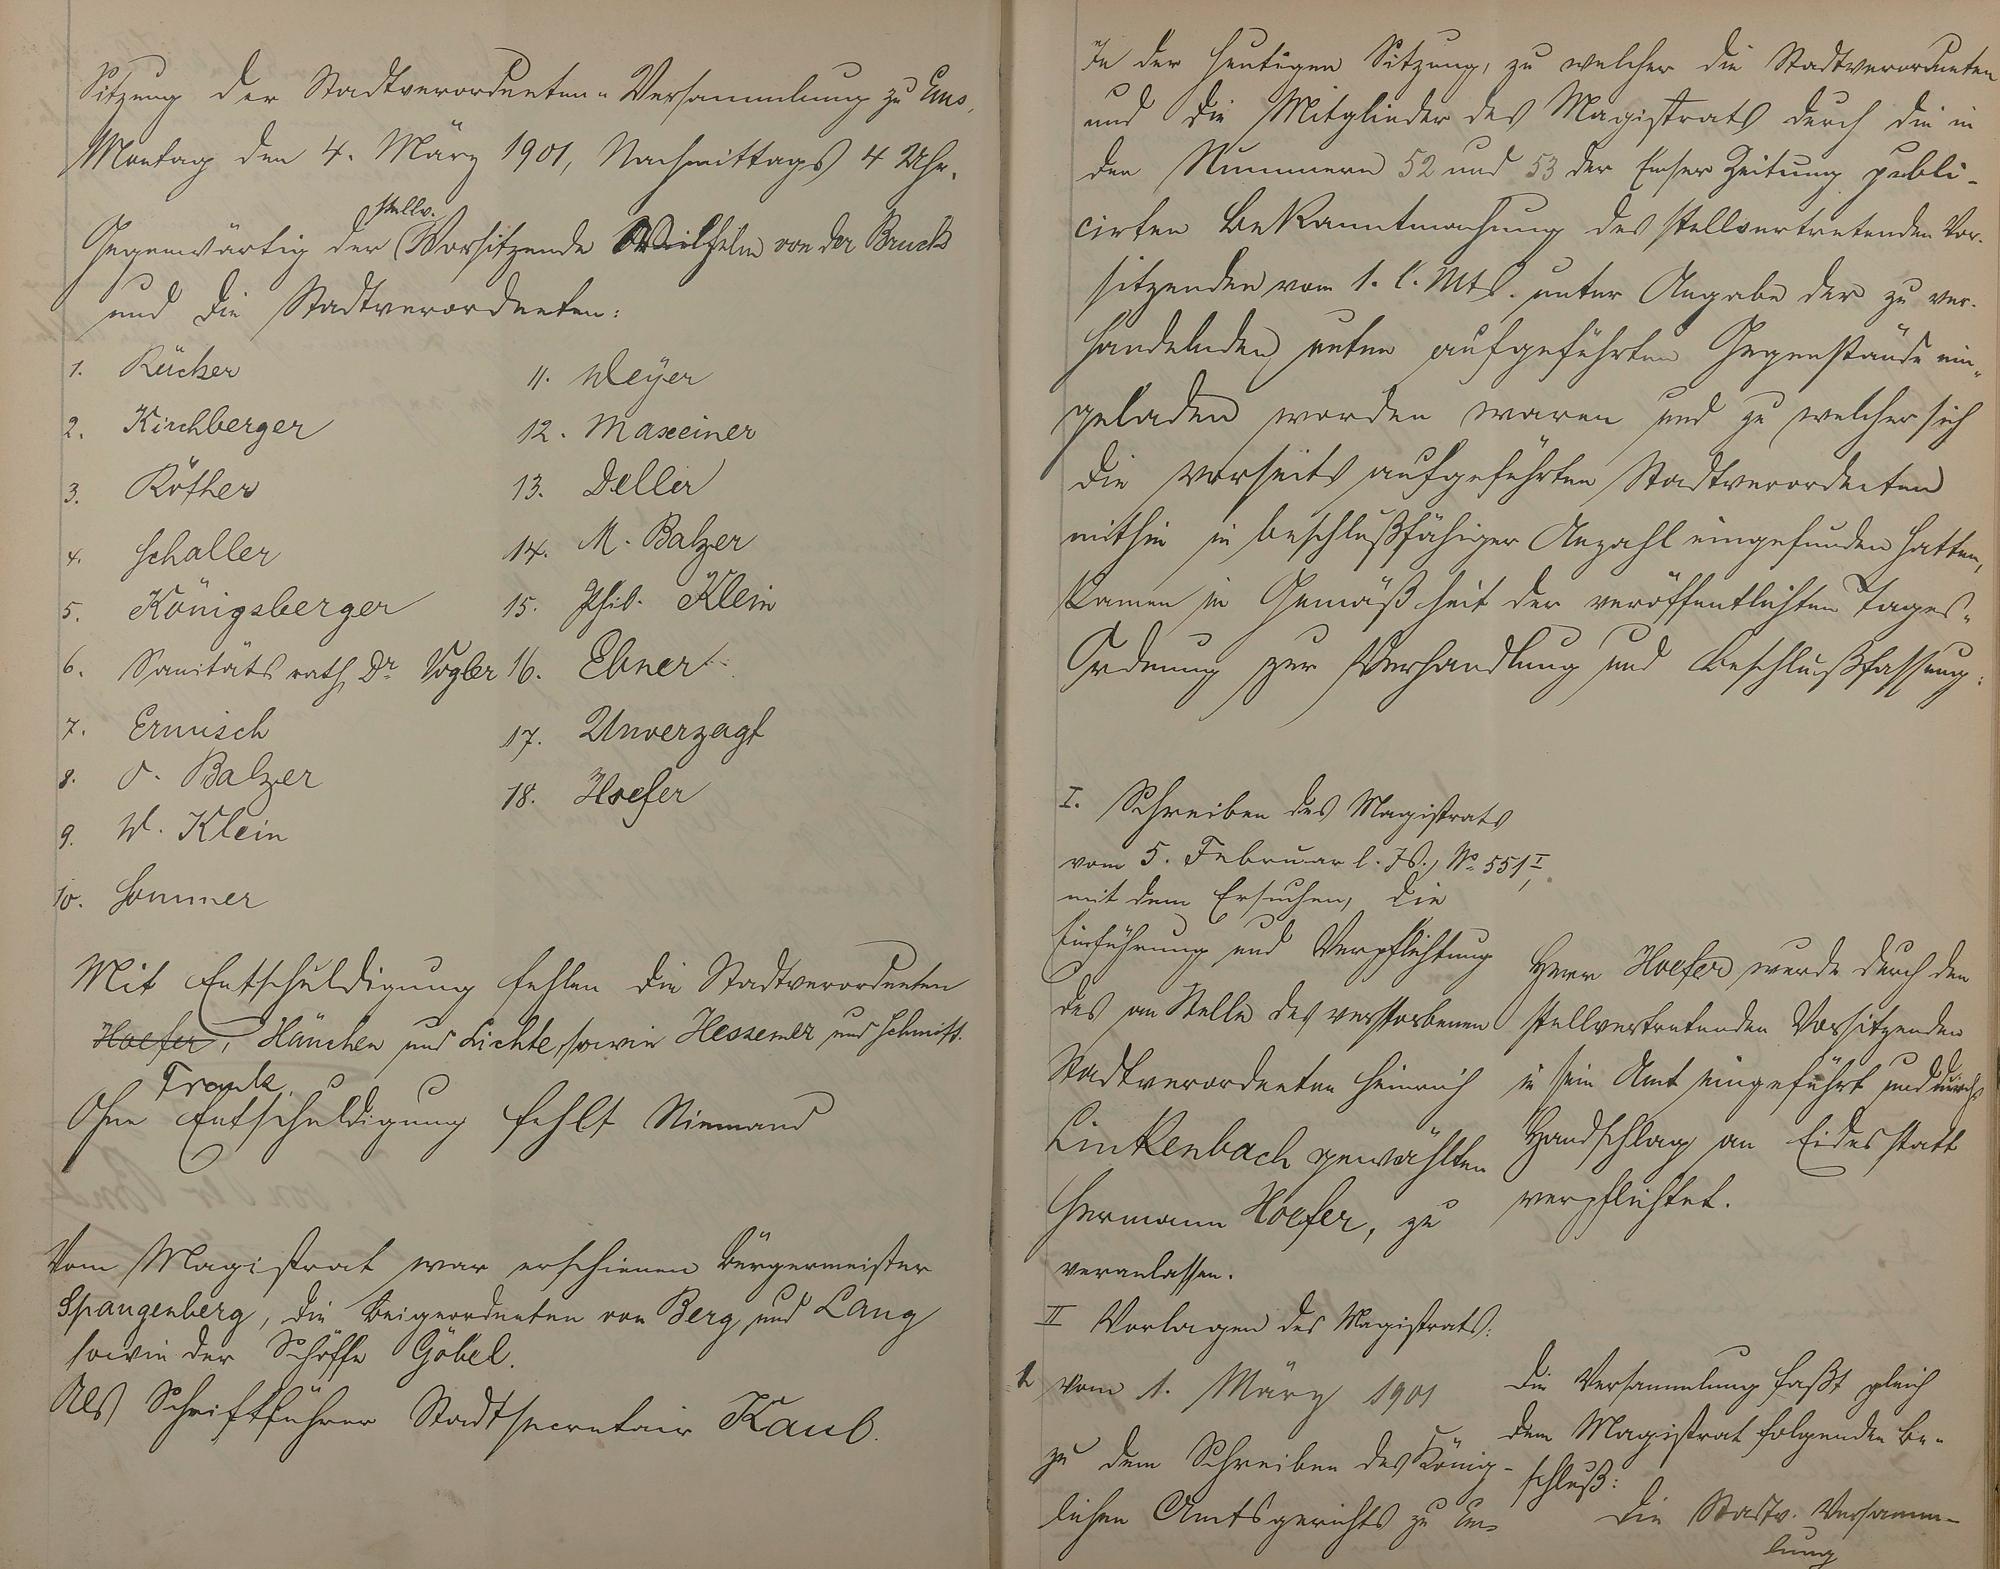 Sitzung der Stadtverordneten-Versammlung zu Ems,
Montag den 4. März 1901, Nachmittags 4 Uhr.
stellv.
Gegenwärtig der Vorsitzende Wilhelm von der Bruck
und die Stadtverordneten:
1. Rücker
2. Kirchberger
3. Röther
4. Schaller
5. Königsberger
6. Sanitätsrath Dr Vogler
7. Ermisch
8. O. Balzer
9. W. Klein
10. Sommer
11. Weyer
12. Maxeiner
13. Deller
14. M. Balzer
15. Phil. Klein
16. Ebner
17. Unverzagt
18. Hoefer
Mit Entschuldigung fehlen die Stadtverordneten
Hoefer, Hänchen und Lichte, sowie Hessemer und Schmitt.
Frank
Ohne Entschuldigung fehlt Niemand
Vom Magistrat war erschienen Bürgermeister
Spangenberg, die Beigeordneten von Berg und Lang
sowie der Schöffe Göbel.
Als Schriftführer Stadtsecretair Kaul.
In der heutigen Sitzung, zu welcher die Stadtverordneten
und die Mitglieder des Magistrats durch die in
den Nummern 52 und 53 der Emser Zeitung publi-
cirten Bekanntmachung des stellvertretenden Vor-
sitzenden vom 1. l. Mts. unter Angabe der zu ver-
handelnden unten aufgeführten Gegenstände ein-
geladen worden waren und zu welcher sich
die vorseits aufgeführten Stadtverordneten
mithin in beschlußfähiger Anzahl eingefunden hatten,
kamen in Gemäßheit der veröffentlichten Tages-
Ordnung zur Verhandlung und Beschlußfassung:
I. Schreiben des Magistrats
vom 5. Februar l. Js., No 551 I,
mit dem Ersuchen, die
Einführung und Verpflichtung
des an Stelle des verstorbenen
Stadtverordneten Heinrich
Linkenbach gewählten
Hermann Hoefer, zu
veranlassen.
Herr Hoefer wurde durch den
stellvertretenden Vorsitzenden
in sein Amt eingeführt und durch
Handschlag an Eidesstatt
verpflichtet.
II Vorlagen des Magistrats:
1. vom 1. März 1901
zu dem Schreiben des König-
lichen Amtsgerichts zu Ems
Die Versammlung faßt gleich
dem Magistrat folgenden Be-
schluß:
Die Stadtv. Versamm-
lung